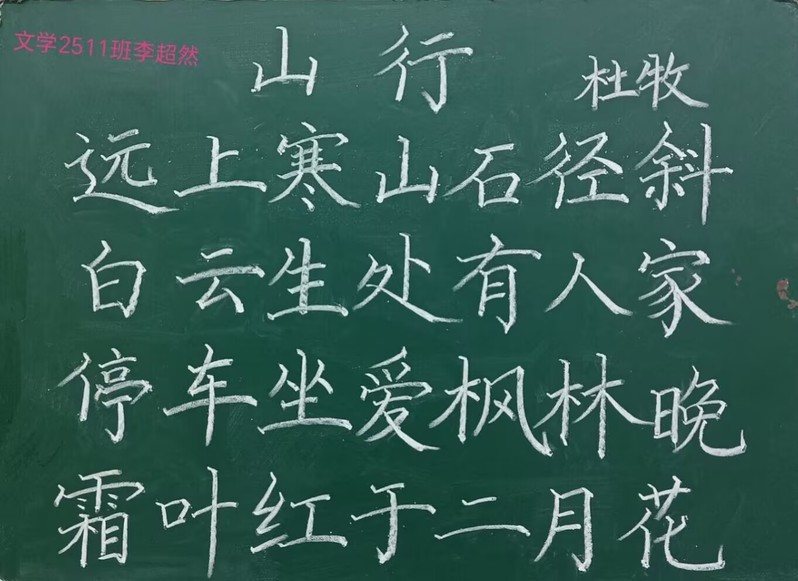 文学2511班李超然
山行
杜牧
远上寒山石径斜
白云生处有人家
停车坐爱枫林晚
霜叶红于二月花